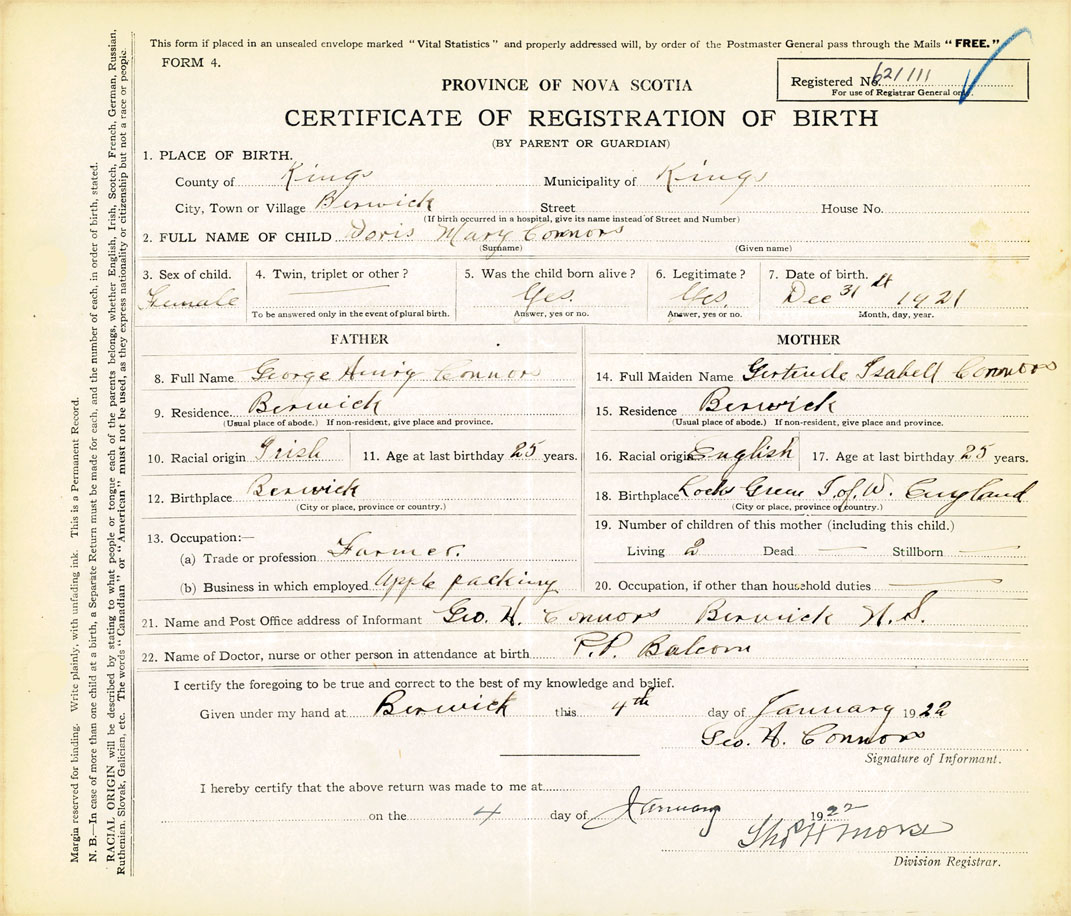 This form if placed in an unsealed envelope marked "Vital Statistics" and properly addressed will, by order of the Postmaster General pass through the Mails "FREE."
FORM 4.
PROVINCE OF NOVA SCOTIA
Registered No. 621111
For use of Registrar General only
CERTIFICATE OF REGISTRATION OF BIRTH
(BY PARENT OR GUARDIAN)
1. PLACE OF BIRTH.
County of Kings Municipality of Kings
City, Town or Village Berwick Street House No.
(If birth occurred in a hospital, give its name instead of Street and Number)
2. FULL NAME OF CHILD Doris Mary Connors
(Surname) (Given name)
3. Sex of child. 4. Twin, triplet or other? 5. Was the child born alive? 6. Legitimate? 7. Date of birth.
Female Yes. Yes. Dec 31st 1921
To be answered only in the event of plural birth. Answer, yes or no. Answer, yes or no. Month, day, year.
FATHER
8. Full Name George Henry Connors
9. Residence Berwick
(Usual place of abode.) If non-resident, give place and province.
10. Racial origin Irish 11. Age at last birthday 25 years.
12. Birthplace Berwick
(City or place, province or country.)
13. Occupation:—
(a) Trade or profession Farmer.
(b) Business in which employed Apple packing
MOTHER
14. Full Maiden Name Gertrude Isabell Connors
15. Residence Berwick
(Usual place of abode.) If non-resident, give place and province.
16. Racial origin English 17. Age at last birthday 25 years.
18. Birthplace Locks Green I. of W. England
(City or place, province or country.)
19. Number of children of this mother (including this child.)
Living 2 Dead — Stillborn —
20. Occupation, if other than household duties —
21. Name and Post Office address of Informant Geo. H. Connors Berwick N.S.
22. Name of Doctor, nurse or other person in attendance at birth P.P. Balcom
I certify the foregoing to be true and correct to the best of my knowledge and belief.
Given under my hand at Berwick this 4th day of January 1922
Geo. H. Connors
Signature of Informant.
I hereby certify that the above return was made to me at
on the 4 day of January 1922
Thos H Morse
Division Registrar.
Margin reserved for binding. Write plainly, with unfading ink. This is a Permanent Record.
N. B.—In case of more than one child at a birth, a Separate Return must be made for each, and the number of each, in order of birth, stated.
RACIAL ORIGIN will be described by stating to what people or tongue each of the parents belongs, whether English, Irish, Scotch, French, German, Russian,
Ruthenian, Slovak, Galician, etc. The words "Canadian" or "American" must not be used, as they express nationality or citizenship but not a race or people.